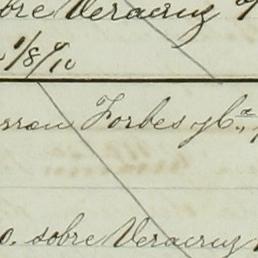 bre Veracruz
1/8 %
rron Forbes y Cª,
o. sobre Veracruz